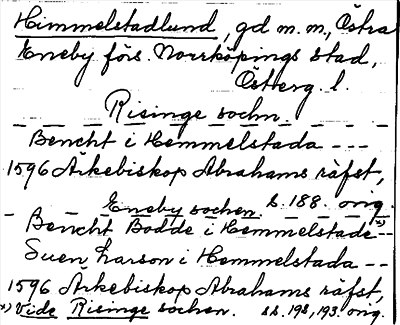 Himmelstadlund, gd m. m., Östra
Eneby förs. Norrköpings stad,
Österg. l.
Risinge sochn.
Bencht i Hemmelstada ---
1596 Ärkebiskop Abrahams räfst,
s. 188. orig.
Eneby sochen. x)
Bencht Bodde i Hemmelstade --
Suen Larson i Hemmelstada --
1596 Ärkebiskop Abrahams räfst,
x) Vide Risinge sochen. ss. 192, 193. orig.